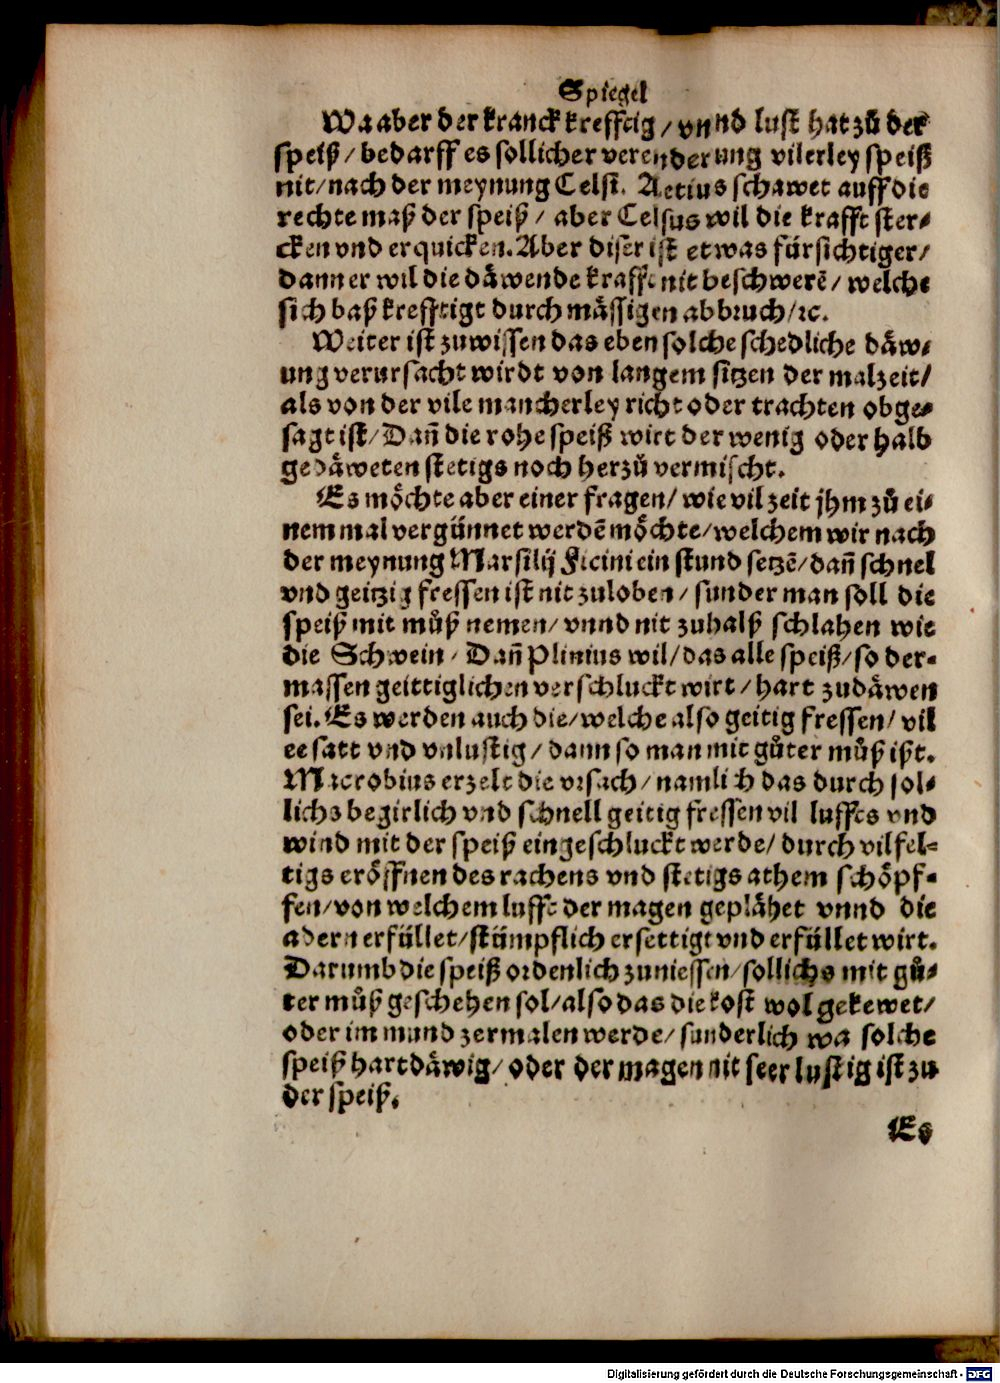 Spiegel
Wa aber der kranck krefftig / vnnd lust hat zů der
speiß / bedarff es sollicher verenderung vilerley speiß
nit / nach der meynung Celsi. Aetius schawet auff die
rechte maß der speiß / aber Celsus wil die krafft ster⸗
cken vnd erquicken. Aber diser ist etwas fürsichtiger /
dann er wil die däwende krafft nit beschwerē / welche
sich baß krefftigt durch mässigen abbruch / ꝛc.
Weiter ist zuwissen das eben solche schedliche däw⸗
ung verursacht wirdt von langem sitzen der malzeit /
als von der vile mancherley richt oder trachten obge⸗
sagt ist / Dañ die rohe speiß wirt der wenig oder halb
gedäweten stetigs noch herzů vermischt.
Es möchte aber einer fragen / wie vil zeit jhm zů ei⸗
nem mal vergünnet werdē möchte / welchem wir nach
der meynung Marsilij Ficini ein stund setzē / dañ schnel
vnd geitzig fressen ist nit zuloben / sunder man soll die
speiß mit můß nemen / vnnd nit zuhalß schlahen wie
die Schwein / Dañ Plinius wil / das alle speiß / so der⸗
massen geittiglichen verschluckt wirt / hart zudäwen
sei. Es werden auch die / welche also geitig fressen / vil
ee satt vnd vnlustig / dann so man mit gůter můß ißt.
Macrobius erzelt die vrsach / namlich das durch sol⸗
lichs begirlich vnd schnell geitig fressen vil lufftes vnd
wind mit der speiß eingeschluckt werde / durch vilfel⸗
tigs eröffnen des rachens vnd stetigs athem schöpf⸗
fen / von welchem lufft der magen geplähet vnnd die
adern erfüllet / stümpflich ersettigt vnd erfüllet wirt.
Darumb die speiß ordenlich zuniessen / sollichs mit gů⸗
ter můß geschehen sol / also das die kost wol gekewet /
oder im mund zermalen werde / sunderlich wa solche
speiß hartdäwig / oder der magen nit seer lustig ist zu
der speiß.
Es
Digitalisierung gefördert durch die Deutsche Forschungsgemeinschaft - DFG